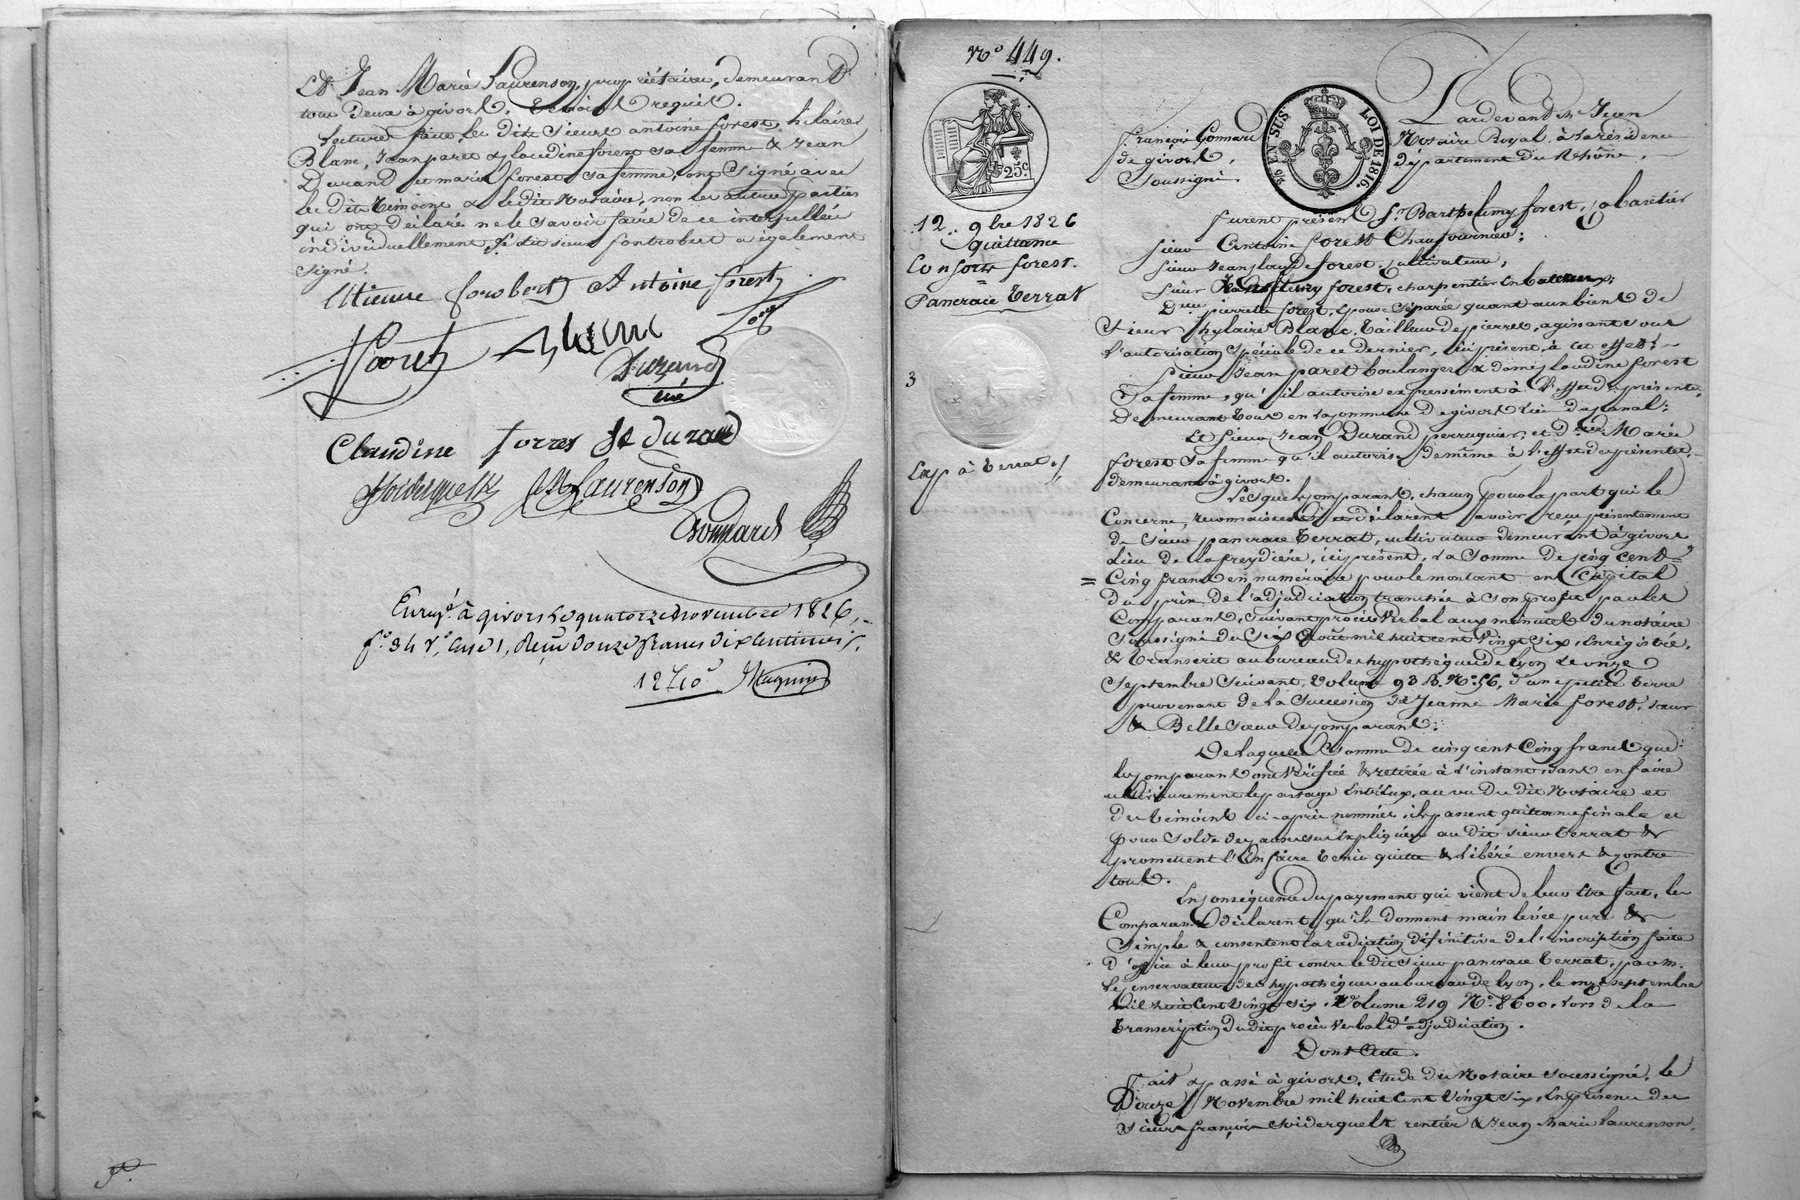 Et Jean Marie Laurenson, propriétaire, demeurant
tous deux à givors, témoins requis.
Lecture faite, les dits sieurs antoine forest, hilaire
Blanc, Jean paret & claudine forest sa femme & Jean
Durand et marie forest sa femme, ont signé avec
les dits témoins & le dit Notaire, non les autres parties
qui ont déclaré ne le savoir faire de ce interpellées
individuellement, le dit sieur fontrobert a également
signé.
Antoine forest
Paret
Blanc
Durand
née
Claudine forres fe durand
JM Laurenson
Gonnard
Enregé à givors le quatorze novembre 1826,
fo 34 Vo, Case 1, Reçu douze francs dix centimes
12f 10c
No 449.
25c
EN SUS
LOI DE 1816.
Pardevant Me Jean
françois Gonnard Notaire Royal, à la résidence
de givors, département du Rhône,
Soussigné.
12. 9bre 1826
quittance
Consorts forest.
à
Pancrace Terrat
3
Exp à Terrat
furent présents sr Barthelemy forest, cabaretier
sieur Antoine forest Chaufournier;
sieur Jean claude forest, cultivateur,
sieur fleury forest, charpentier en bateaux;
Due pierrette forest, épouse séparée quant aux biens de
sieur hylaire Blanc, tailleur de pierres, agissant sous
l'autorisation spéciale de ce dernier, ici présent, à cet effet;
sieur Jean paret boulanger & dame claudine forest
sa femme, qu'il autorise expressément à l'effet des présentes,
demeurant tous en la commune de givors lieu du canal;
Et sieur Jean Durand perruquier, et De Marie
forest sa femme qu'il autorise de même à l'effet des présentes,
demeurant à givors.
Lesquels comparants, chacun pour la part qui le
Concerne, reconnaissent et déclarent avoir reçu présentement
de sieur pancrace Terrat, cultivateur demeurant à givors
lieu de la freydière, ici présent, la somme de cinq cent
= Cinq francs en numéraire pour le montant en capital
du prix de l'adjudication tranchée à son profit par les
Comparants, suivant procès verbal aux minutes du notaire
soussigné du six août mil huit cent vingt six, Enregistré,
& transcrit au bureau des hypothèques de Lyon le onze
septembre suivant, volume 93 B. No 56, d'une petite terre
provenant de la succession de Jeanne Marie forest, sœur
& Belle sœur des comparants.
De laquelle somme de cinq cent Cinq francs que
les comparants ont vérifiée & retirée à l'instant, sauf en faire
ultérieurement le partage entr'eux, au vu du dit Notaire et
des témoins ci-après nommés, ils passent quittance finale et
pour solde des causes sus expliquées au dit sieur Terrat &
promettent l'en faire tenir quitte & libéré envers & contre
tous.
En conséquence du payement qui vient de leur être fait, les
Comparants déclarent, qu'ils donnent main levée pure &
simple & consentent la radiation définitive de l'inscription faite
d'office à leur profit contre le dit sieur pancrace Terrat, par m.
le conservateur des hypothèques au bureau de Lyon, le onze septembre
mil huit cent vingt six, Volume 219 No 8600, lors de la
transcription du dit procès verbal d'adjudication.
Dont Acte.
Fait & passé à givors, étude du Notaire soussigné, le
Douze Novembre mil huit cent vingt six, En présence des
sieurs françois rentier & Jean Marie Laurenson.